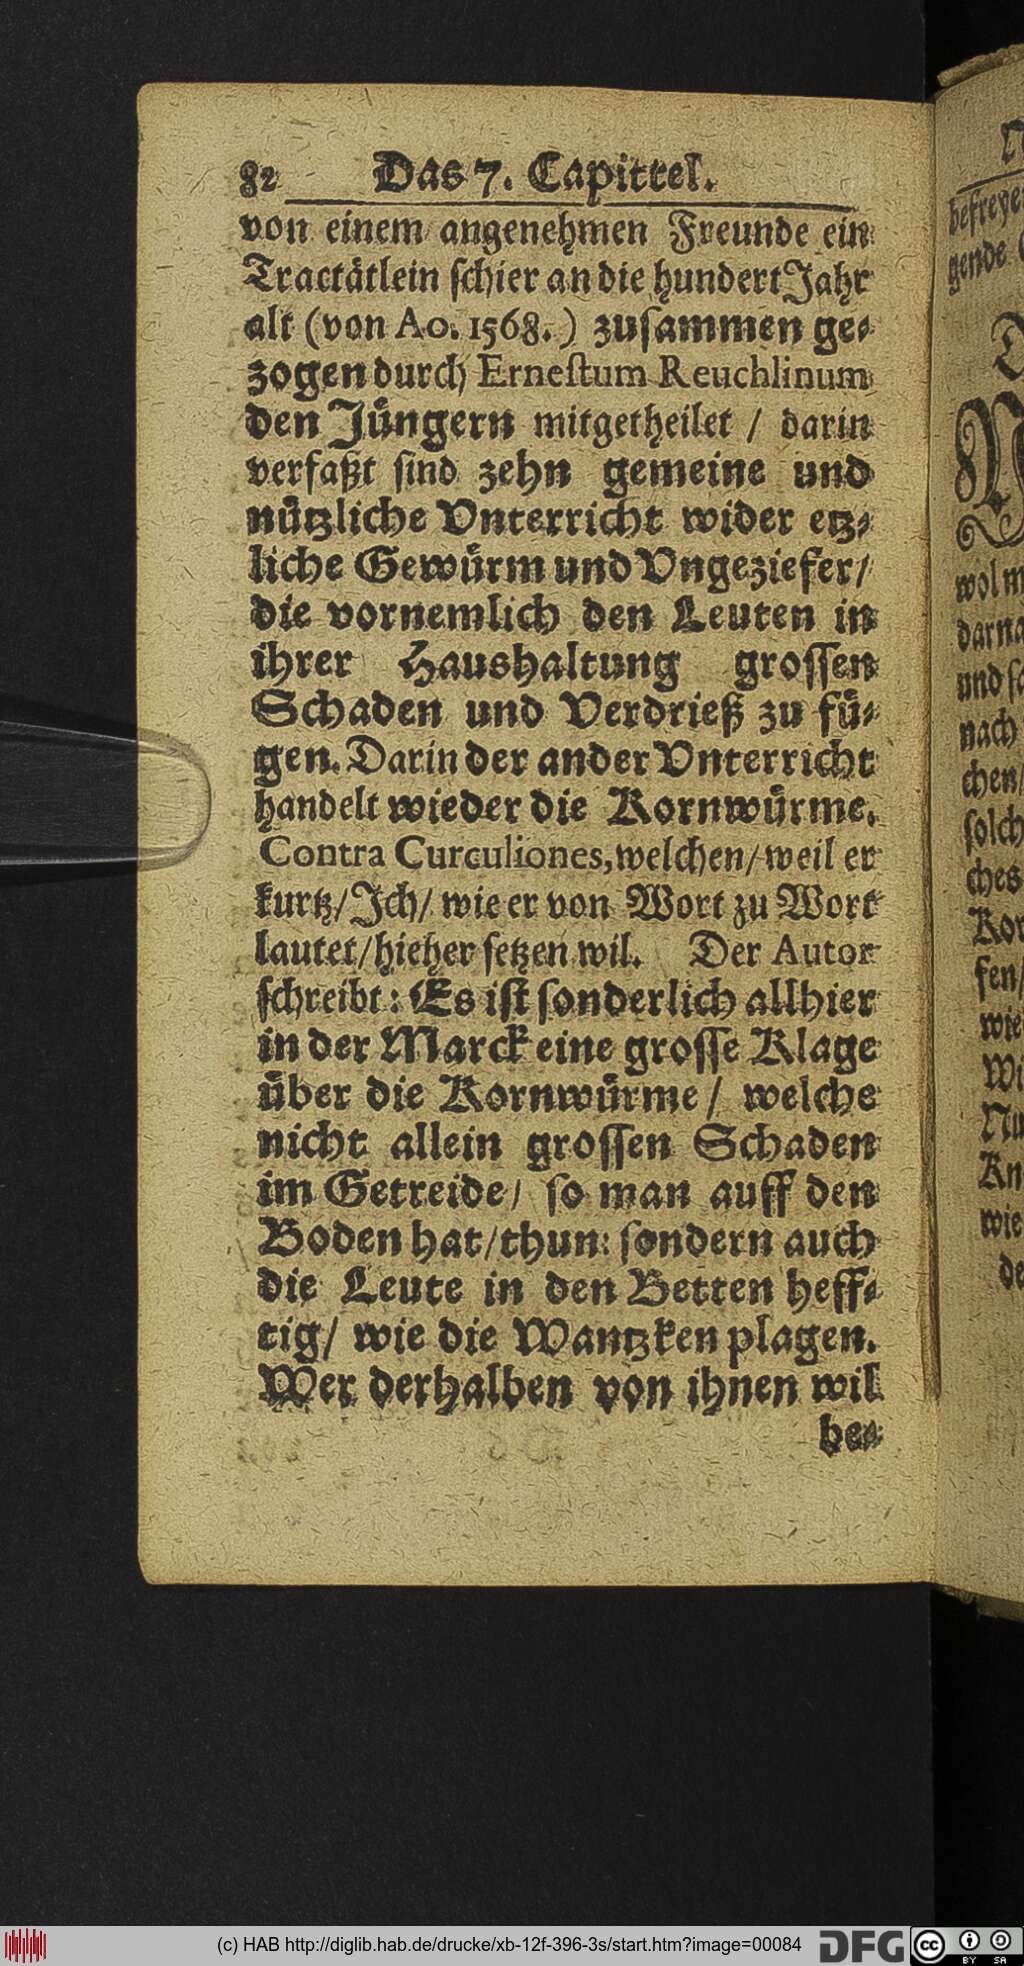 82 Das 7. Capittel.
von einem angenehmen Freunde ein
Tractätlein schier an die hundert Jahr
alt (von Ao. 1568.) zusammen ge-
zogen durch Ernestum Reuchlinum
den Jüngern mitgetheilet / darin
verfaßt sind zehn gemeine und
nützliche Vnterricht wider etz-
liche Gewürm und Vngeziefer/
die vornemlich den Leuten in
ihrer Haushaltung grossen
Schaden und Verdrieß zu fü-
gen. Darin der ander Vnterricht
handelt wieder die Kornwürme.
Contra Curculiones, welchen/ weil er
kurtz/ Jch/ wie er von Wort zu Wort
lautet/ hieher setzen wil. Der Autor
schreibt: Es ist sonderlich allhier
in der Marck eine grosse Klage
über die Kornwürme / welche
nicht allein grossen Schaden
im Getreide/ so man auff den
Boden hat/ thun: sondern auch
die Leute in den Betten heff-
tig/ wie die Wantzken plagen.
Wer derhalben von ihnen wil
be-
befreyen
gende
wol m
darna
und so
nach
chen/
solch
ches
Kor
fen/
wie
Wi
Nu
Kn
wie
de
(c) HAB http://diglib.hab.de/drucke/xb-12f-396-3s/start.htm?image=00084
DFG
cc
BY SA